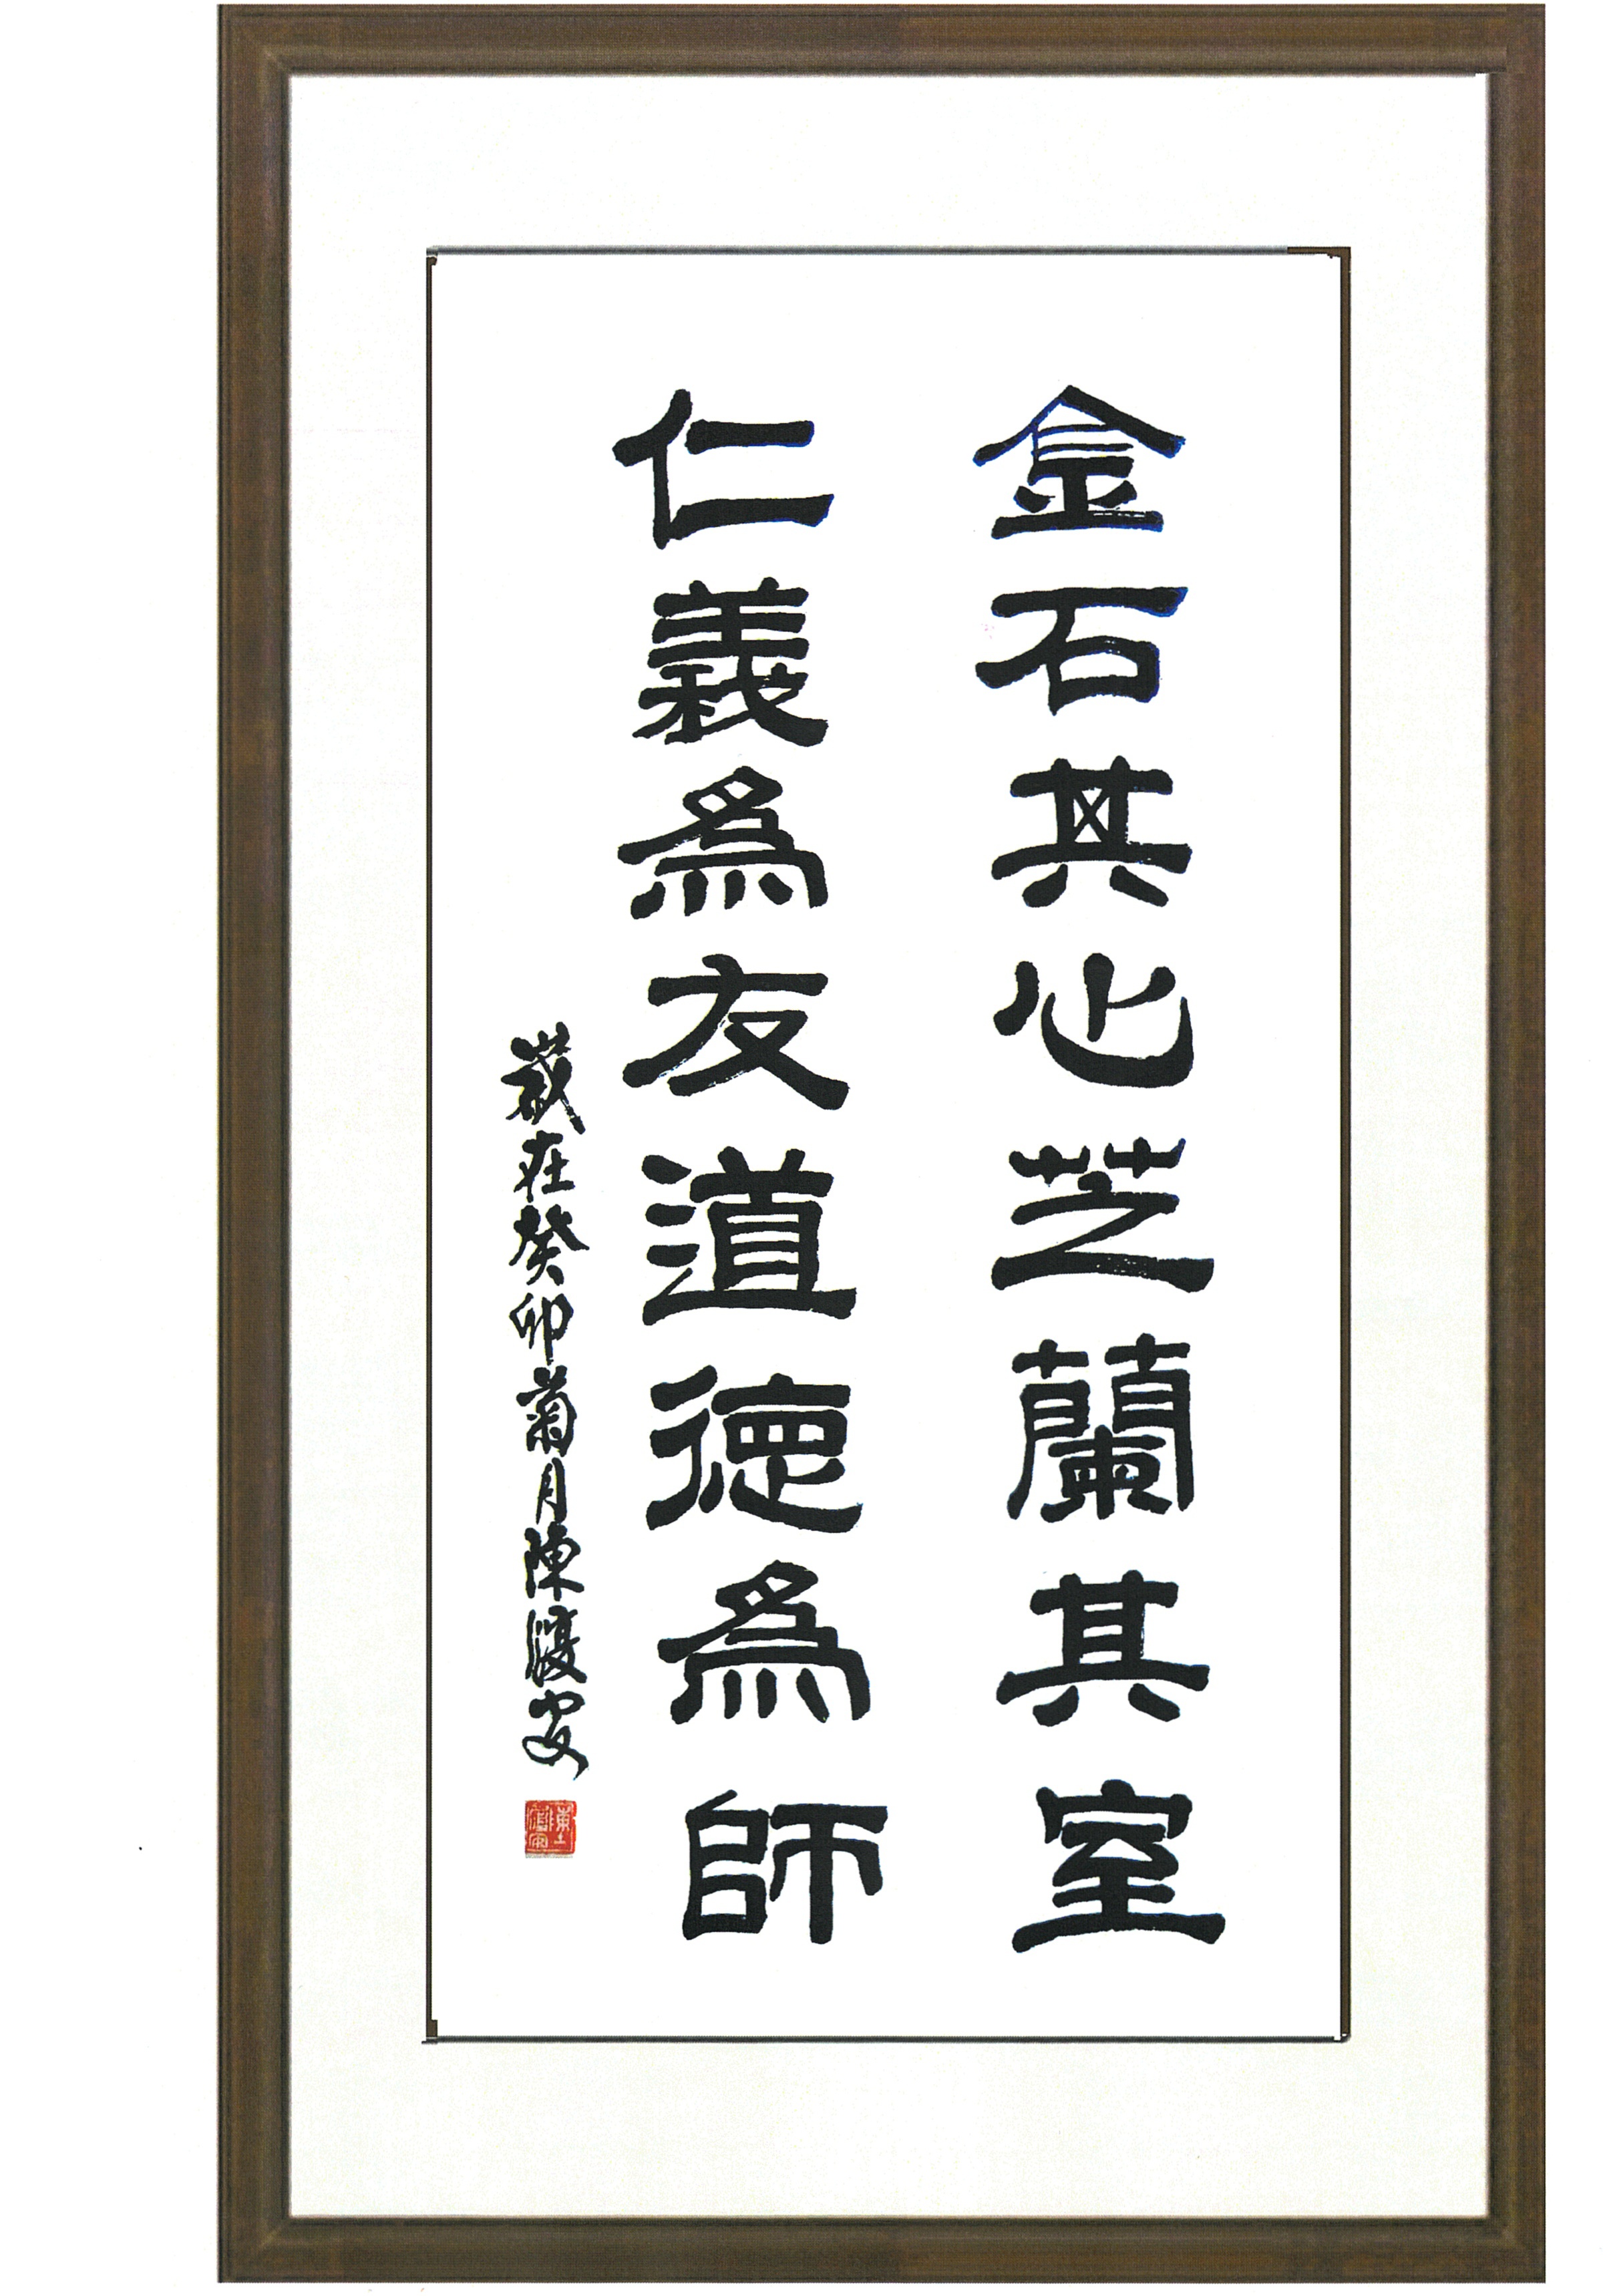 金石其心芝蘭其室
仁義為友道德為師
歲在癸卯菊月陳濅安